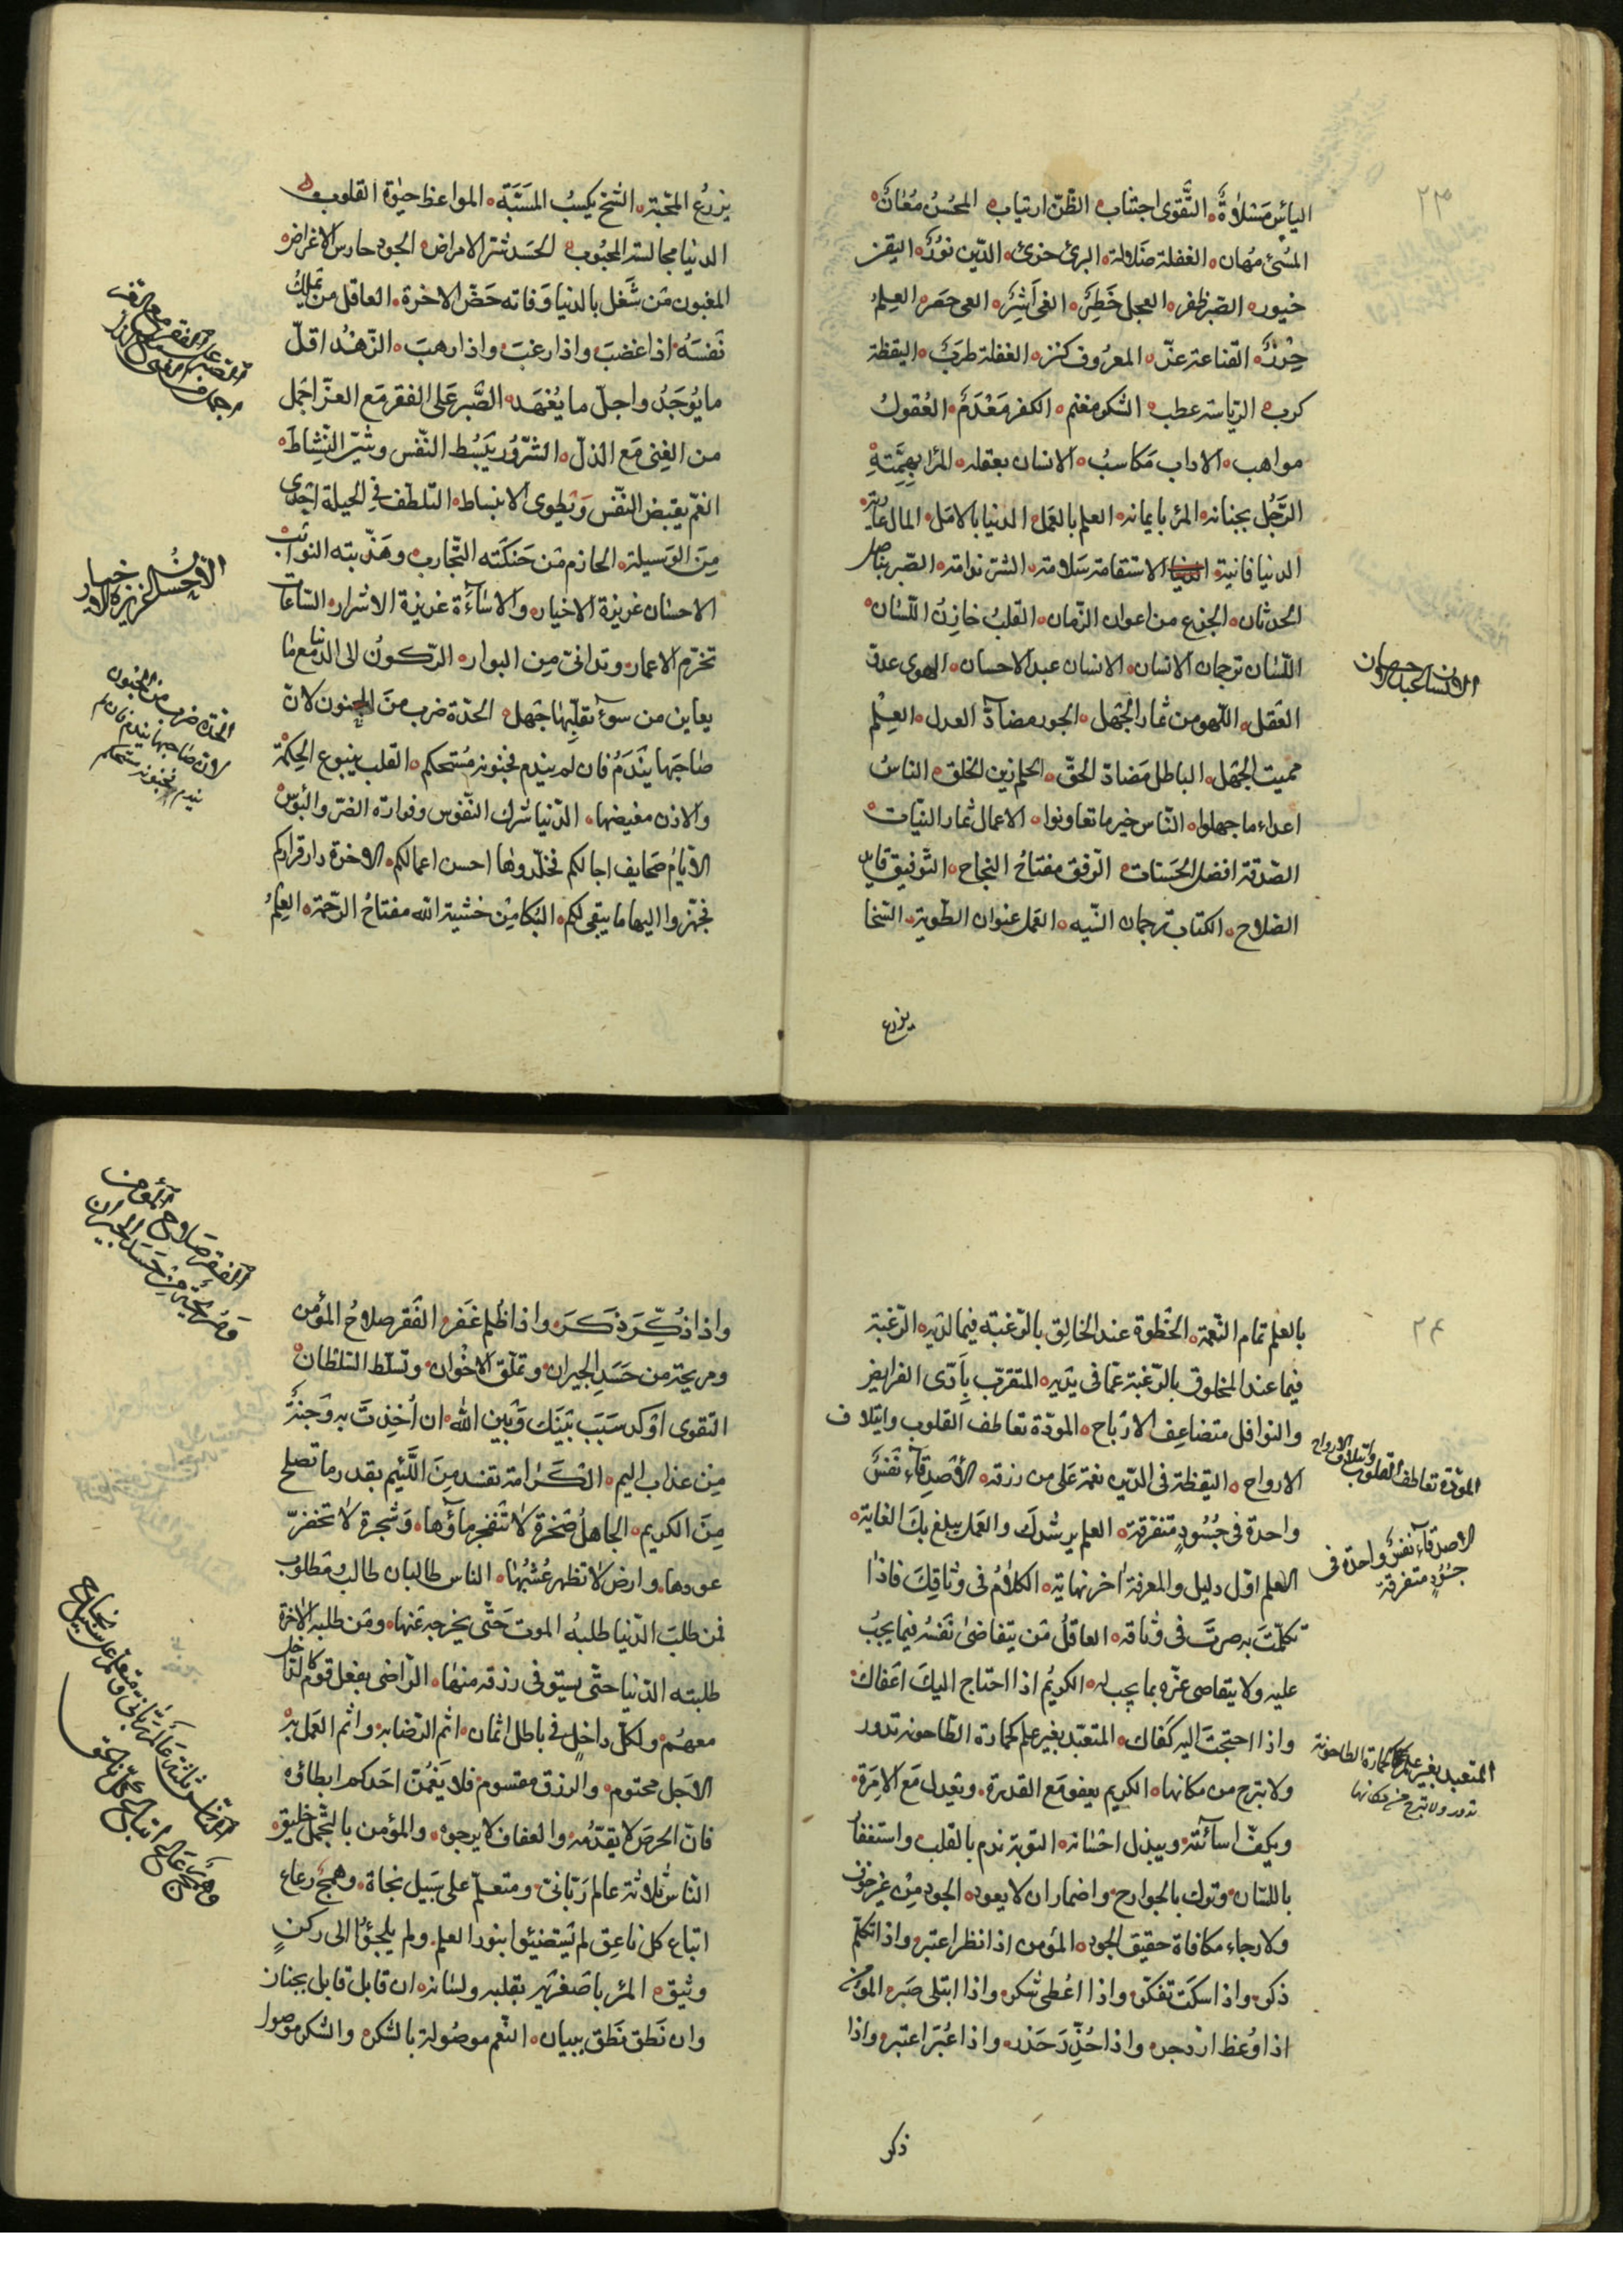 ٢٣
اليأس مسلاة التقوى اجتناب الظن ارتياب المحسن معان
المسئ مهان الغفلة ضلالة البرئ جرئ الدين نور اليقين
حبور الصبر ظفر العجل خطر الغى اشر العى حصر العلم
حرز القناعة عز المعروف كنز الغفلة طرب اليقظة
كرب الرياسة عطب الشكر مغنم الكفر مغرم العقول
مواهب الاداب مكاسب الانسان بعقله المرا بهمته
الرجل بجنانه المرء بايمانه العلم بالعمل الدنيا بالامل المال عارية
الدنيا فانية الاستقامة سلامة الشر ندامة الصبر يناضل
الحدثان الجزع من اعوان الزمان القلب خازن اللسان
اللسان ترجمان الانسان الانسان عبد الاحسان الهوى عدو
العقل اللهو من ثمار الجهل الجور مضادّ العدل العلم
مميت الجهل الباطل مضادّ الحقّ الحلم زين الخلق الناس
اعداء ما جهلوا الناس خير ما تعاونوا الاعمال ثمار النيات
الصدقة افضل الحسنات الرفق مفتاح النجاح التوفيق قايد
الصلاح الكتاب ترجمان النيه العمل عنوان الطوية السخا
الانسان عبد الاحسان
يزرع
يزرع المحبة الشح يكسب المسبّة المواعظ حيوة القلوب
الدنيا مجالسة المحبوب الحسد شر الامراض الجود حارس الاعراض
المغبون من شغل بالدنيا وفاته حظ الاخرة العاقل من تملك
نفسه اذا غضب واذا رغب واذا رهب الزهد اقلّ
ما يوجد واجلّ ما يعهد الصبر على الفقر مع العزّ اجمل
من الغنى مع الذل السرور يبسط النفس ويثير النشاط
الغم يقبض النفس ويطوى الانبساط التلطف فى الحيلة اجدى
من الوسيلة الحازم من حنكته التجارب وهذبته النوائب
الاحسان غريزة الاخيار والاساءة غريزة الاشرار الساعات
تخترم الاعمار وتدانى من البوار الركون الى الدنيا مع ما
يعاين من سوء تقلبها جهل الحدة ضرب من الجنون لان
صاحبها يندم فان لم يندم فجنونه مستحكم القلب ينبوع الحكمة
والاذن مغيضها الدنيا شرك النفوس وقرارة الضر والبؤس
الايام صحايف اجالكم فخلدوها احسن اعمالكم الاخرة دار قراركم
فجهزوا اليها ما يبقى لكم البكا من خشية الله مفتاح الرحمة العلم
الصبر على الفقر مع العز
اجمل من الغنى مع الذل
الاحسان غريزة الاخيار
الحدة ضرب من الجنون
لان صاحبها يندم فان لم
يندم فجنونه مستحكم
٢٤
بالعلم تمام النعمة الخطوة عند الخالق بالرغبة فيما لديه الرغبة
فيما عند المخلوق بالرغبة عما فى يديه المتقرب بادى الفرايض
والنوافل متضاعف الارباح المودة تعاطف القلوب وايتلاف
الارواح اليقظة فى الدين نعمة على من رزقه الاصدقاء نفس
واحدة فى جسوم متفرقة العلم يرشدك والعمل يبلغ بك الغاية
العلم اول دليل والمعرفة اخر نهاية الكلام فى وثاقك فاذا
تكلمت به صرت فى وثاقه العاقل من يتقاضى نفسه فيما يجب
عليه ولا يتقاصى غيره بما يجب له الكريم اذا احتاج اليك اعفاك
واذا احتجت اليه كفاك المتعبد بغير علم كحمارة الطاحونة تدور
ولا تبرح من مكانها الكريم يعفو مع القدرة ويعدل مع الامرة
ويكف اسائته ويبذل احسانه التوبة ندم بالقلب واستغفار
باللسان وترك بالجوارح واضمار ان لا يعود الجود من غير خوف
ولا رجاء مكافاة حقيقة الجود المؤمن اذا نظر اعتبر واذا تكلم
ذكر واذا سكت تفكر واذا اعطى شكر واذا ابتلى صبر المؤمن
اذا وعظ ازدجر واذا حذّر حذر واذا عبّر اعتبر واذا
المودة تعاطف القلوب وايتلاف الارواح
الاصدقاء نفس واحدة فى
جسوم متفرقة
المتعبد بغير علم كحمارة الطاحونة
تدور ولا تبرح من مكانها
ذكر
واذا ذكّر ذكر واذا ظلم غفر الفقر صلاح المؤمن
ومريحه من حسد الجيران وتملق الاخوان وتسلط السلطان
التقوى اوكد سبب بينك وبين الله ان اخذت به وجنة
من عذاب اليم الكرامة تفسد من اللئيم بقدر ما تصلح
من الكريم الجاهل صخرة لا تنفجر ماؤها وشجرة لا تخضرّ
عودها وارض لا تظهر عشبها الناس طالبان طالب ومطلوب
فمن طلب الدنيا طلبه الموت حتى يخرجه عنها ومن طلب الاخرة
طلبته الدنيا حتى يستوفى رزقه منها الراضى بفعل قوم كالداخل
معهم ولكل داخل فى باطل اثمان اثم الرضا به واثم العمل به
الاجل محتوم والرزق مقسوم فلا يغمن احدكم ابطاؤه
فان الحرص لا يقدمه والعفاف لا يرجوه والمؤمن بالتجمل خليق
الناس ثلاثة عالم ربانى ومتعلم على سبيل نجاة وهمج رعاع
اتباع كل ناعق لم يستضيئوا بنور العلم ولم يلجؤا الى ركن
وثيق المرء باصغريه بقلبه ولسانه ان قابل قابل بجنان
وان نطق نطق ببيان النعم موصولة بالشكر والشكر موصول
الفقر صلاح المؤمن
ومريحه من حسد الجيران
الناس ثلاثة عالم ربانى ومتعلم على سبيل نجاة
وهمج رعاع اتباع كل ناعق